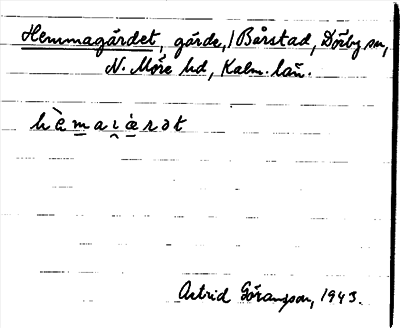 Hemmagärdet, gärde, / Bårstad, Dörby sn,
N. Möre hd, Kalm. län.
hèmaɩæ̀rət
Astrid Göransson, 1943.